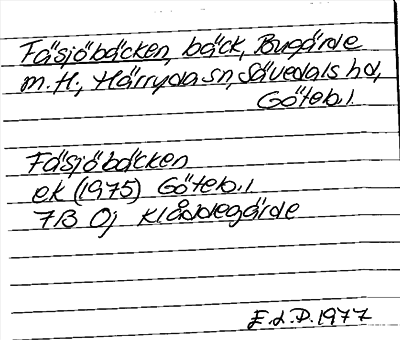 Fäsjöbäcken, bäck, Bugärde
m. fl., Härryda sn, Sävedals hd,
Göteb. l.
Fäsjöbäcken
ek (1975) Göteb. l
7B 0j Klåddegärde
E.L.P. 1977